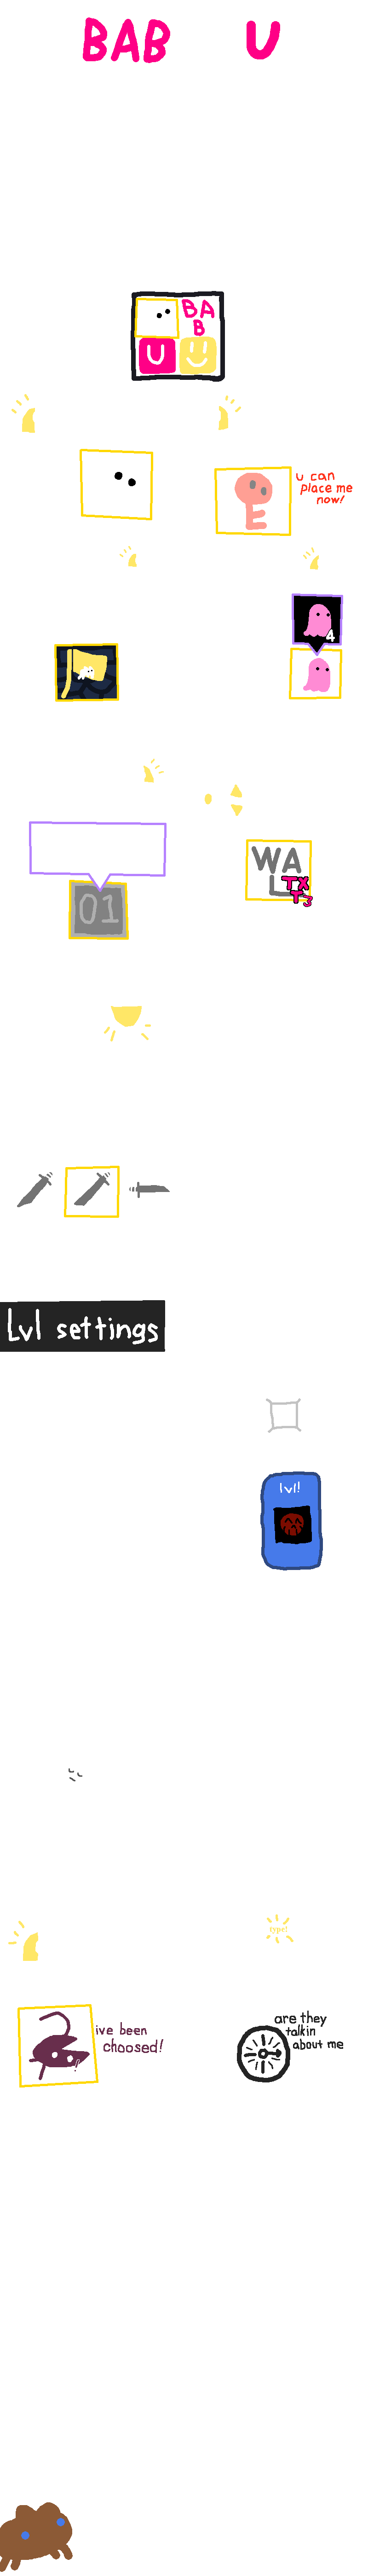 BAB U
BA
B
U
u can
place me
now!
4
01
WA
L
TX
T3
Lvl settings
lvl!
type!
ive been
choosed!
are they
talkin
about me